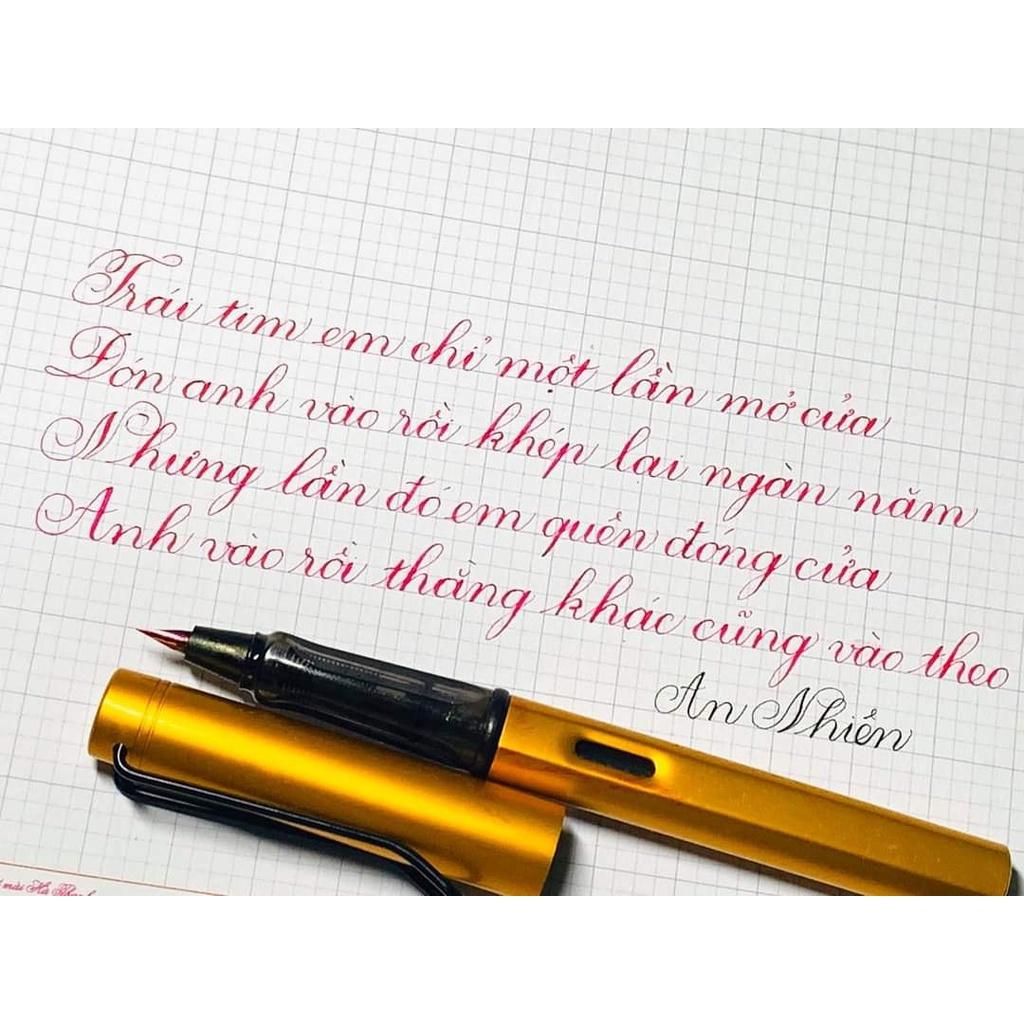 Trái tim em chỉ một lần mở cửa
Đón anh vào rồi khép lại ngàn năm
Nhưng lần đó em quên đóng cửa
Anh vào rồi thằng khác cũng vào theo
An Nhiên